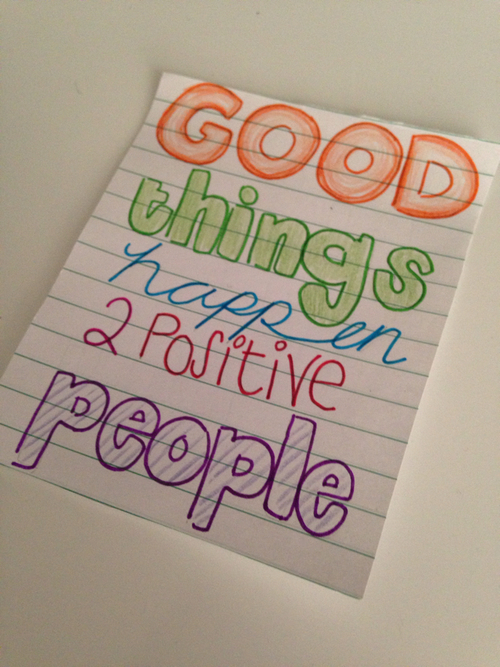 GOOD
things
happen
2 Positive
people